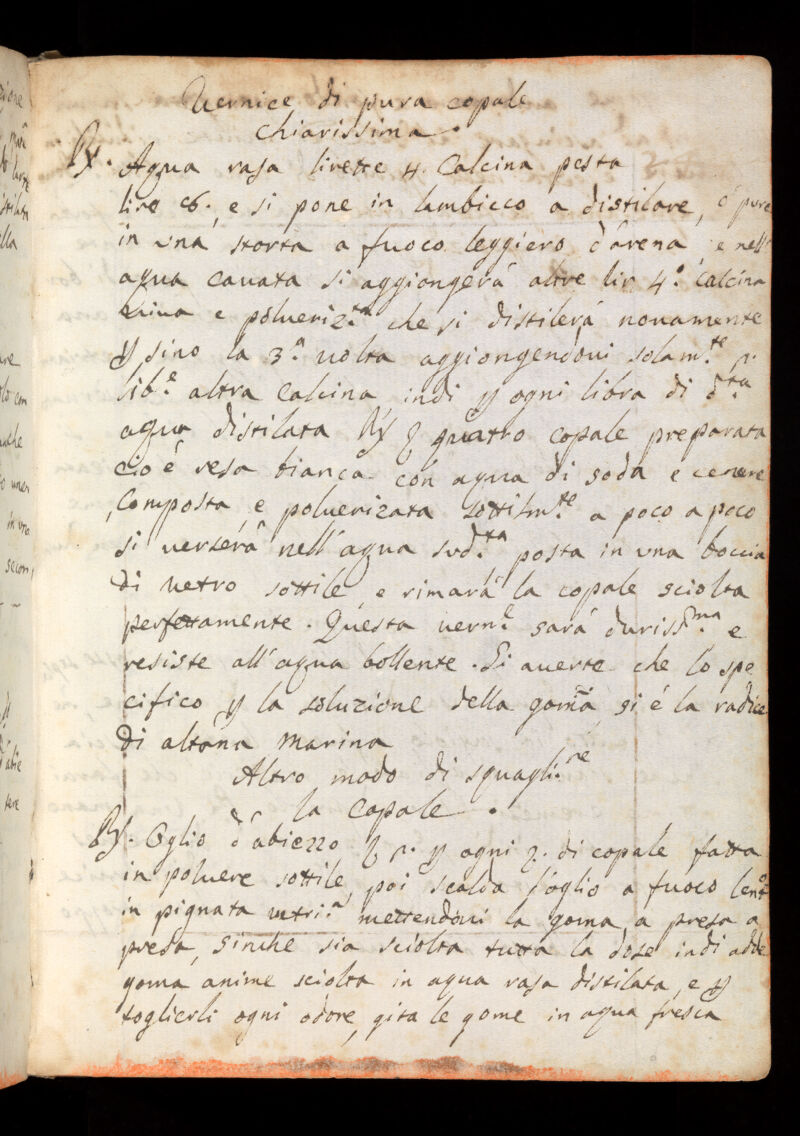 Vernice di pura copale
chiarissima.
Rx. Aqua rasa lirette 4. Calcina pesta
lire 6., e si pone in lambicco a distilare, ó pure
in una storta a fuoco leggiero d'arena, e nell'
aqua cauata si aggiongerá altre lir. 4.e Calcina
uiua e polueriz.ta che si distilerá nouamente
p sino la 3.a uolta aggiongendoui solam.te
lib.e altra Calcina indi p ogni libra di d.ta
aqua distilata Rx quatro copale preparata
cio é resa bianca con aqua di soda e cenere
composta e poluerizata sottilm.te a poco a poco
si verserá nell'aqua sud.ta posta in una boccia
di uetro sottile, e rimará la copale sciolta
perfettamente. Questa uern.e sará duriss.ma e
resiste all'aqua bollente. Si auerte che lo spe
cifico p la soluzione della goma, si é la radice
di altana marina
Altro modo di squagli.re
la Copale.
Rx. Oglio d'abiezzo p ogni di copale fatta
in poluere sottile, poi scalda l'oglio a fuoco lento
in pignata uitri.a mettendoui la goma a presa a
presa, sinche sia sciolta tutta la dose indi adde
goma anime sciolta in aqua rasa distilata, e p
toglierli ogni odore, gita le gome in aqua fresca